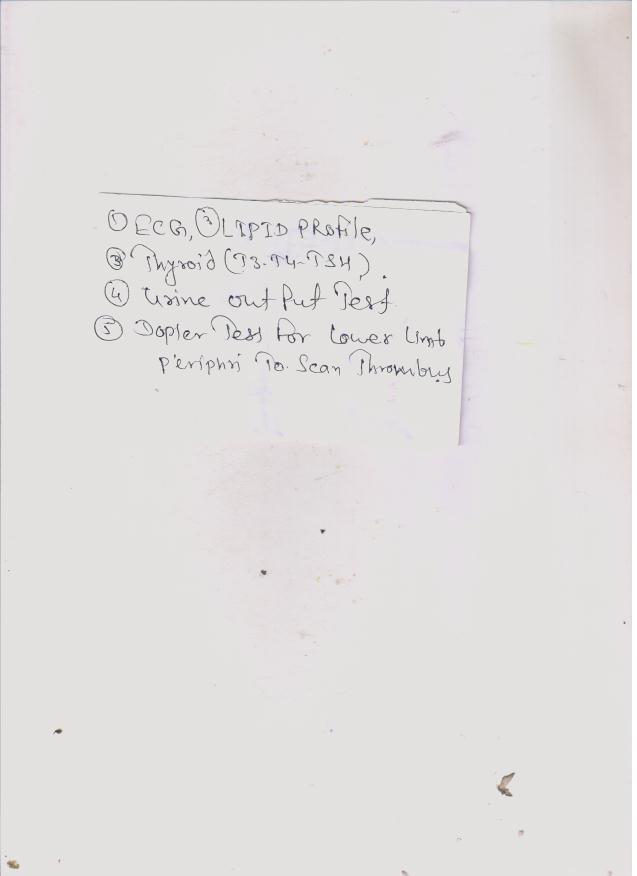 ① ECG, ② LIPID PRofile,
③ Thyroid (T3-T4-TSH).
④ Urine out Put Test
⑤ Dopler Test For Lower Limb
P'eriphri To. Scan Thrombus